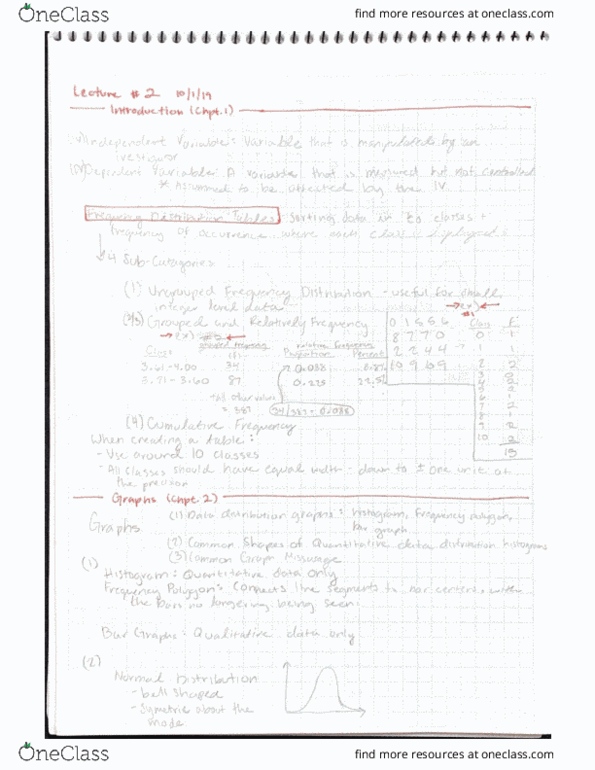 OneClass
find more resources at oneclass.com
Lecture #2 10/1/19
Introduction (Chpt.1)
Independent Variable: Variable that is manipulated by an
(DV) Dependent Variable: A variable that is measured but not controlled
* Assumed to be affected by the IV
Frequency Distribution Tables: Sorting data in to classes +
frequency of occurrence where each class is displayed
4 Sub-Catagories
(1) Ungrouped Frequency Distribution - useful for small,
integer level data
(2/3) Grouped and Relatively Frequency
ex)
Class
3.61-4.00 34 0.088
3.71-3.80 87 0.225
= 387
34/387 = 0.088
Class F
(4) Cumulative Frequency
When creating a table:
- Use around 10 classes
- All classes should have equal width - down to ± one unit of
the precision
Graphs (Chpt.2)
Graphs
(1) Data distribution graphs: Histogram, Frequency polygon,
Bar graph
(2) Common Shapes of Quantitative data distribution histograms
(3) Common Graph Misusage
(1)
Histogram: Quantitative data only
Frequency Polygon: Connects line segments to bar centers, with
the bars no longer being seen.
Bar Graphs: Qualitative data only
(2)
Normal Distribution
- bell shaped
- Symetric about the
mode
OneClass
find more resources at oneclass.com